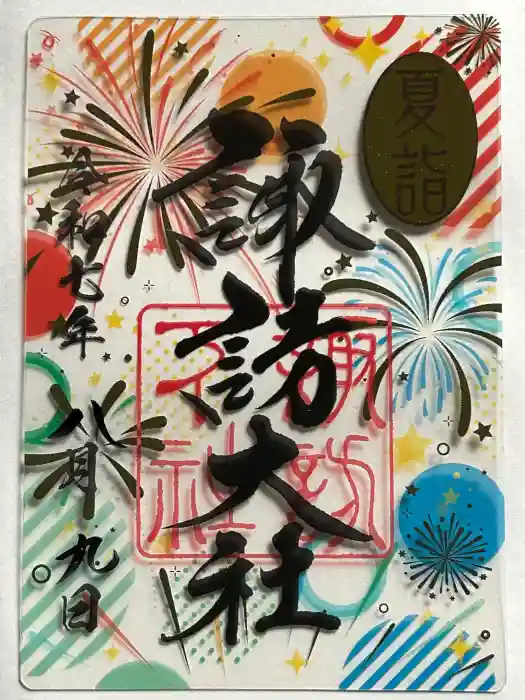 夏詣
諏訪大社
諏訪
下社
令和七年
八月九日